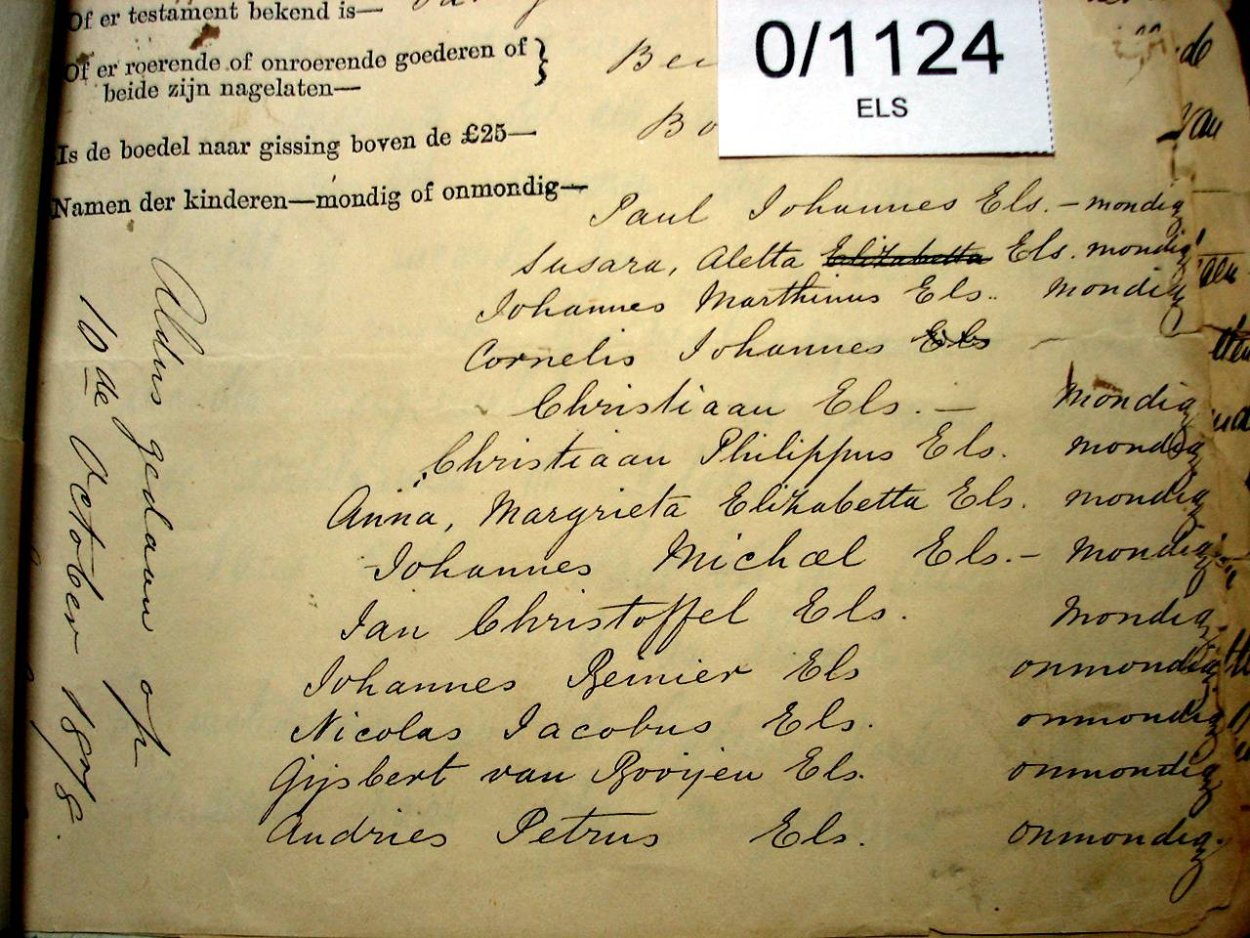 Of er testament bekend is—
0/1124
ELS
Of er roerende of onroerende goederen of }
beide zijn nagelaten—
Is de boedel naar gissing boven de £25—
Namen der kinderen—mondig of onmondig—
Paul Johannes Els. – mondig
Susara, Aletta Elizabetta Els. mondig
Johannes Marthinus Els.. Mondig
Cornelis Johannes Els –
Christiaan Els. – Mondig
Christiaan Philippus Els. mondig
Anna, Margrieta Elizabetta Els. mondig
Johannes Michael Els. – Mondig
Jan Christoffel Els. Mondig
Johannes Reinier Els onmondig
Nicolas Jacobus Els. onmondig
Gijsbert van Rooijen Els. onmondig
Andries Petrus Els. onmondig.
Aldus gedaan op
16de October 1878.